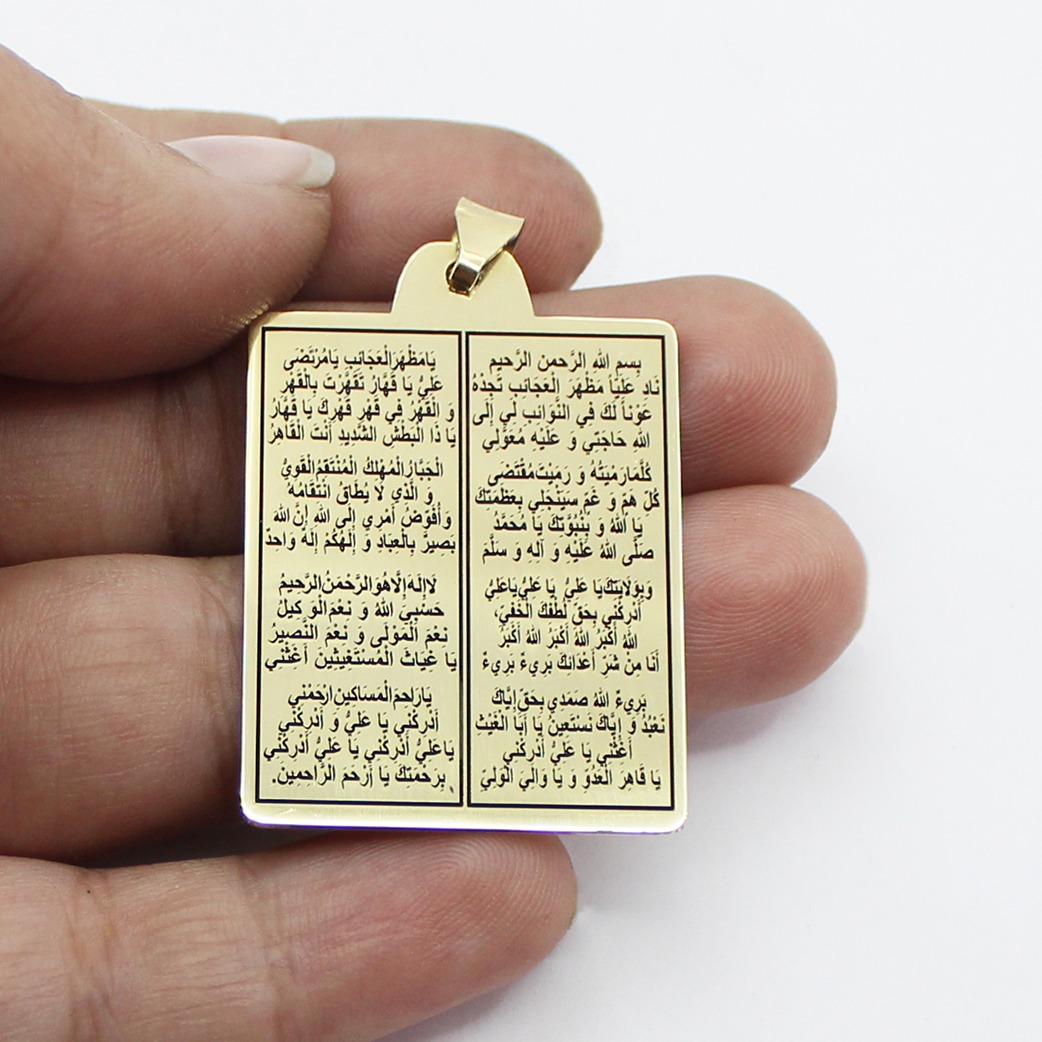 بِسمِ اللهِ الرَّحمنِ الرَّحیمِ
نَادِ عَلِیّاً مَظْهَرَ الْعَجَائِبِ تَجِدْهُ
عَوْناً لَكَ فِي النَّوَائِبِ لِي إِلَى
اللهِ حَاجَتِي وَ عَلَيْهِ مُعَوَّلِي
كُلَّمَا رَمِيْتُهُ وَ رَمِيْتَ مُقْتَضَى
كُلِّ هَمٍّ وَ غَمٍّ سَيَنْجَلِي بِعَظَمَتِكَ
يَا اَللهُ وَ بِنُبُوَّتِكَ يَا مُحَمَّدُ
صَلَّى اللهُ عَلَيْهِ وَ آلِهِ وَ سَلَّمَ
وَبِوَلَايَتِكَ يَا عَلِيُّ يَا عَلِيُّ يَا عَلِيُّ
أَدْرِكْنِي بِحَقِّ لُطْفِكَ الْخَفِيِّ،
اللهُ أَكْبَرُ اللهُ أَكْبَرُ اللهُ أَكْبَرُ
أَنَا مِنْ شَرِّ أَعْدَائِكَ بَرِيءٌ بَرِيءٌ
بَرِيءٌ اللهُ صَمَدِي بِحَقِّ إِيَّاكَ
نَعْبُدُ وَ إِيَّاكَ نَسْتَعِينُ يَا أَبَا الْغَيْثِ
أَغِثْنِي يَا عَلِيُّ أَدْرِكْنِي
يَا قَاهِرَ الْعَدُوِّ وَ يَا وَالِيَ الْوَلِيِّ
يَا مَظْهَرَ الْعَجَائِبِ يَا مُرْتَضَى
عَلِيُّ يَا قَهَّارُ تَقَهَّرْتَ بِالْقَهْرِ
وَ الْقَهْرُ فِي قَهْرِ قَهْرِكَ يَا قَهَّارُ
يَا ذَا الْبَطْشِ الشَّدِيدِ أَنْتَ الْقَاهِرُ
الْجَبَّارُ الْمُهْلِكُ الْمُنْتَقِمُ الْقَوِيُّ
وَ الَّذِي لَا يُطَاقُ انْتِقَامُهُ
وَ أُفَوِّضُ أَمْرِي إِلَى اللهِ إِنَّ اللهَ
بَصِيرٌ بِالْعِبَادِ وَ إِلَهُكُمْ إِلَهٌ وَاحِدٌ
لَا إِلَهَ إِلَّا هُوَ الرَّحْمَنُ الرَّحِيمُ
حَسْبِيَ اللهُ وَ نِعْمَ الْوَكِيلُ
نِعْمَ الْمَوْلَى وَ نِعْمَ النَّصِيرُ
يَا غِيَاثَ الْمُسْتَغِيثِينَ أَغِثْنِي
يَا رَاحِمَ الْمَسَاكِينِ ارْحَمْنِي
أَدْرِكْنِي يَا عَلِيُّ وَ أَدْرِكْنِي
يَا عَلِيُّ أَدْرِكْنِي يَا عَلِيُّ أَدْرِكْنِي
بِرَحْمَتِكَ يَا أَرْحَمَ الرَّاحِمِينَ.